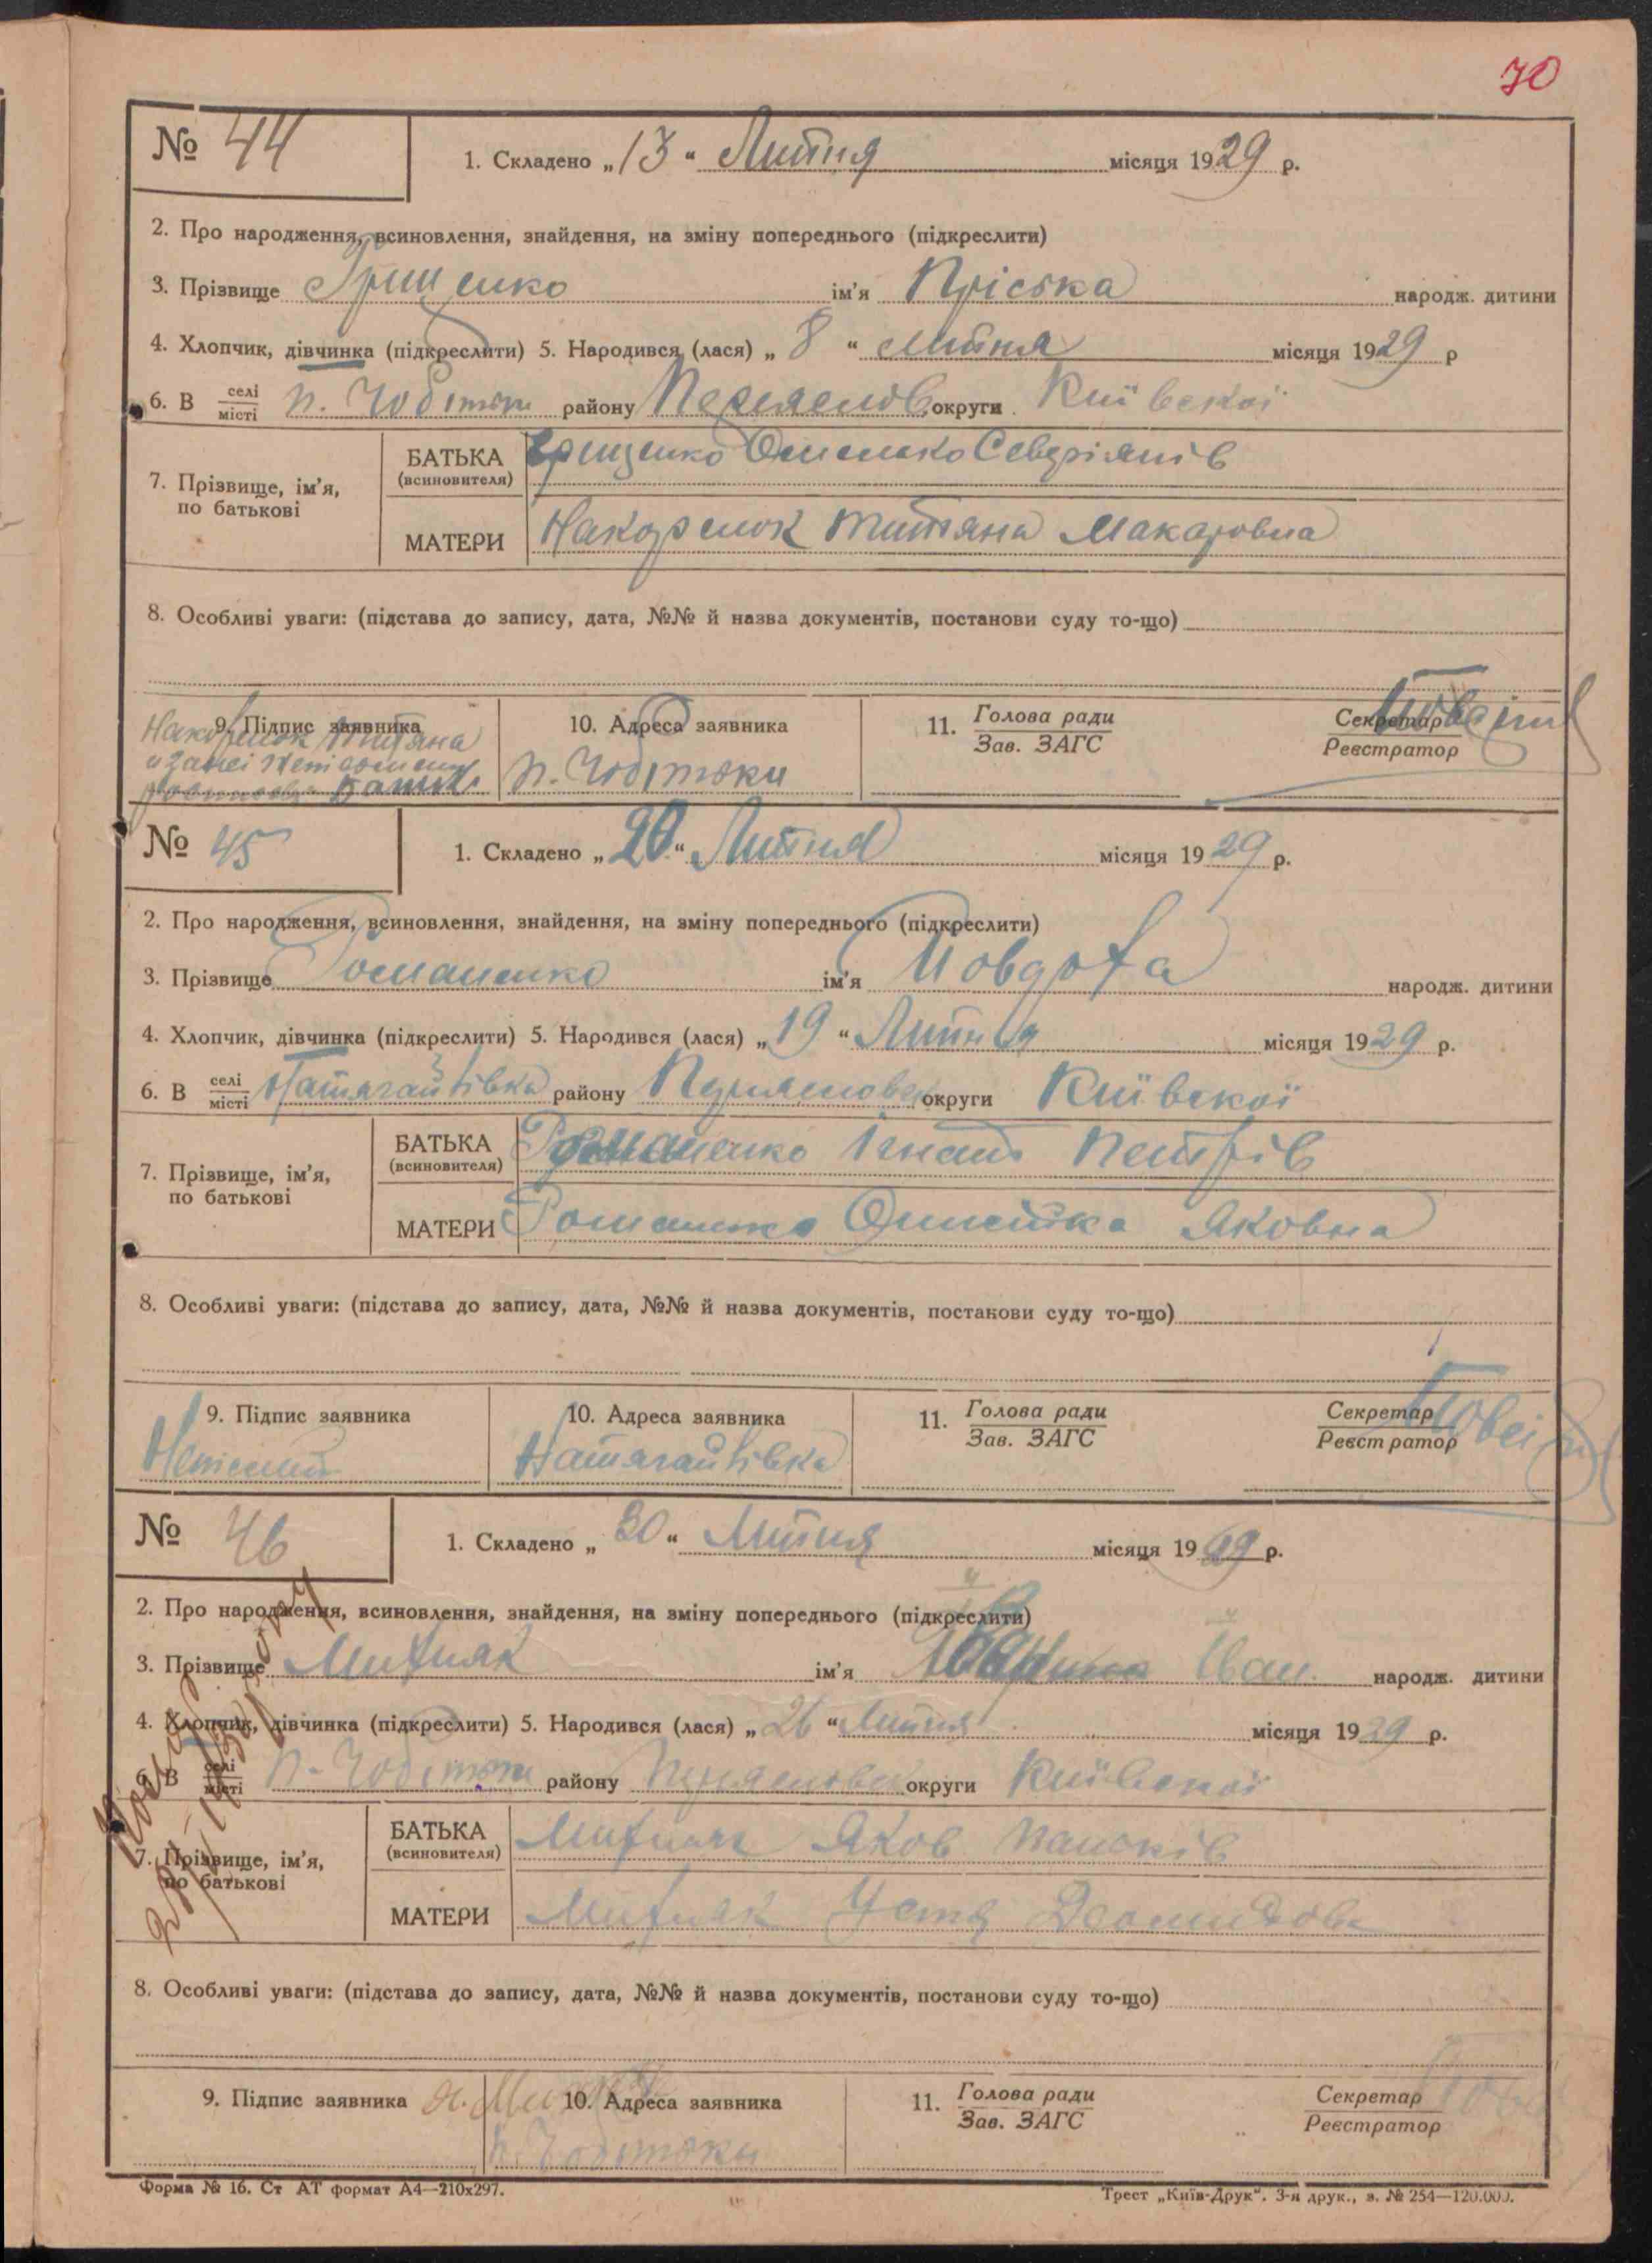 70
№ 44
1. Складено „13“ Липня місяця 1929 р.
2. Про народження, всиновлення, знайдення, на зміну попереднього (підкреслити)
3. Прізвище Грищенко ім'я Пріська народж. дитини
4. Хлопчик, дівчинка (підкреслити) 5. Народився (лася) „8“ Липня місяця 1929 р
6. В селі/місті п. Чобітьки району Переяслов округи Київскої
7. Прізвище, ім'я, по батькові
БАТЬКА (всиновителя) Грищенко Омелько Северіянів
МАТЕРИ Накорнюк Титяна Макаровна
8. Особливі уваги: (підстава до запису, дата, №№ й назва документів, постанови суду то-що)
9. Підпис заявника Титяна
10. Адреса заявника п. Чобітьки
11. Голова ради / Зав. ЗАГС
Секретар / Реєстратор
№ 45
1. Складено „20“ Липня місяця 1929 р.
2. Про народження, всиновлення, знайдення, на зміну попереднього (підкреслити)
3. Прізвище Романенко ім'я Иовдоха народж. дитини
4. Хлопчик, дівчинка (підкреслити) 5. Народився (лася) „19“ Липня місяця 1929 р.
6. В селі/місті району округи Київскої
7. Прізвище, ім'я, по батькові
БАТЬКА (всиновителя) Романенко Ігнат Петрів
МАТЕРИ Романенко Яковна
8. Особливі уваги: (підстава до запису, дата, №№ й назва документів, постанови суду то-що)
9. Підпис заявника
10. Адреса заявника
11. Голова ради / Зав. ЗАГС
Секретар / Реєстратор
№ 46
1. Складено „30“ Липня місяця 1929 р.
2. Про народження, всиновлення, знайдення, на зміну попереднього (підкреслити)
3. Прізвище Михняк ім'я Іван народж. дитини
4. Хлопчик, дівчинка (підкреслити) 5. Народився (лася) „26“ Липня місяця 1929 р.
6. В селі/місті п. Чобітьки району округи Київскої
7. Прізвище, ім'я, по батькові
БАТЬКА (всиновителя) Михняк Яков
МАТЕРИ Михняк Устя
8. Особливі уваги: (підстава до запису, дата, №№ й назва документів, постанови суду то-що)
9. Підпис заявника
10. Адреса заявника п. Чобітьки
11. Голова ради / Зав. ЗАГС
Секретар / Реєстратор
Форма № 16. Ст АТ формат А4—210х297.
Трест „Київ-Друк“. 3-я друк., з. № 254—120.000.